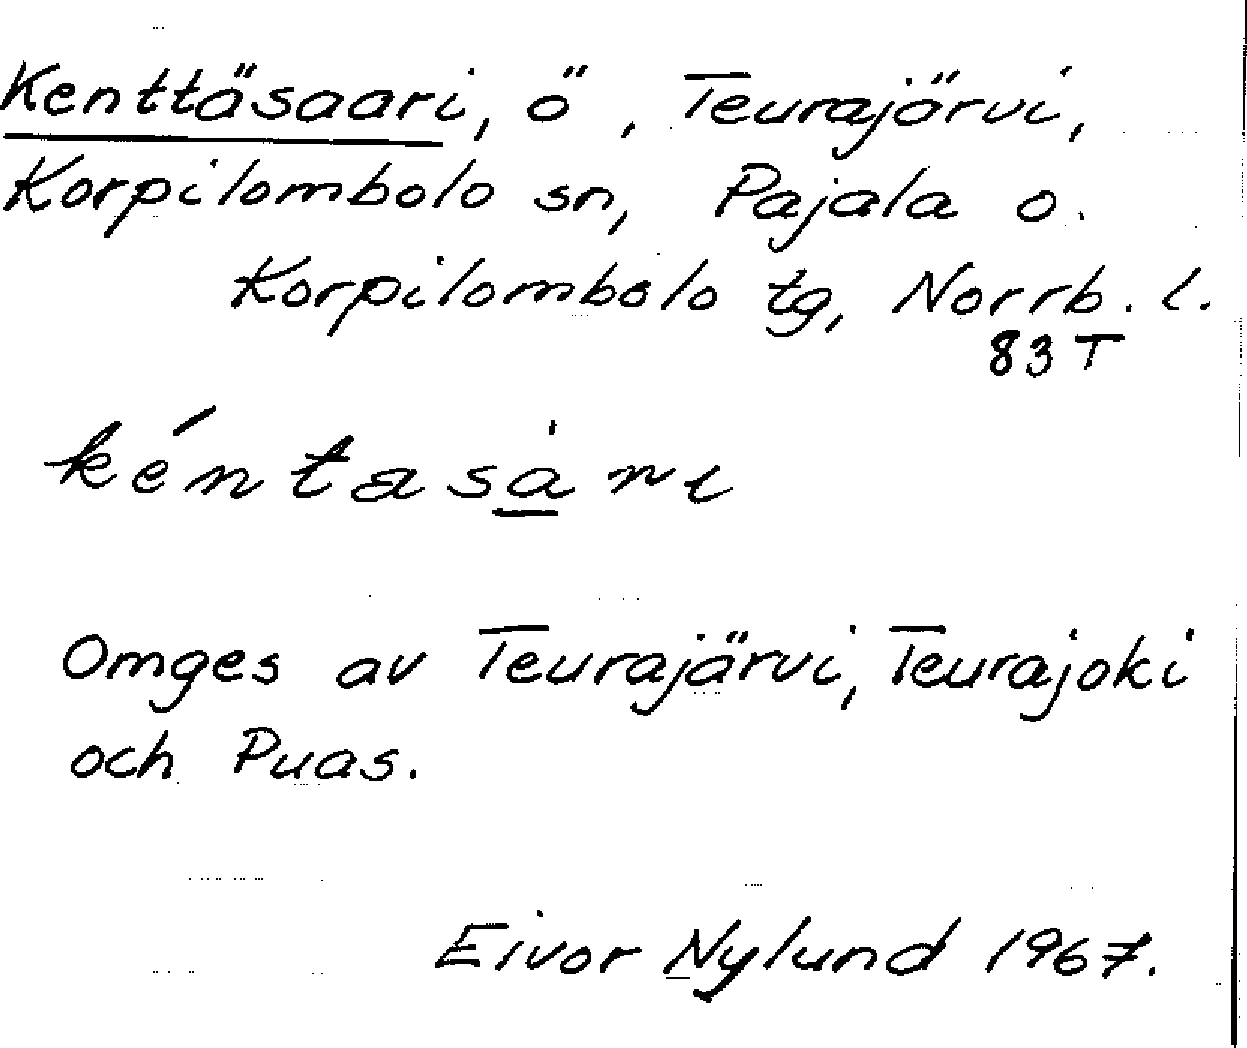 Kenttäsaari, ö, Teurajärvi,
Korpilombolo sn, Pajala o.
Korpilombolo tg, Norrb. l.
83 T
kéntasàri
Omges av Teurajärvi, Teurajoki
och Puas.
Eivor Nylund 1967.